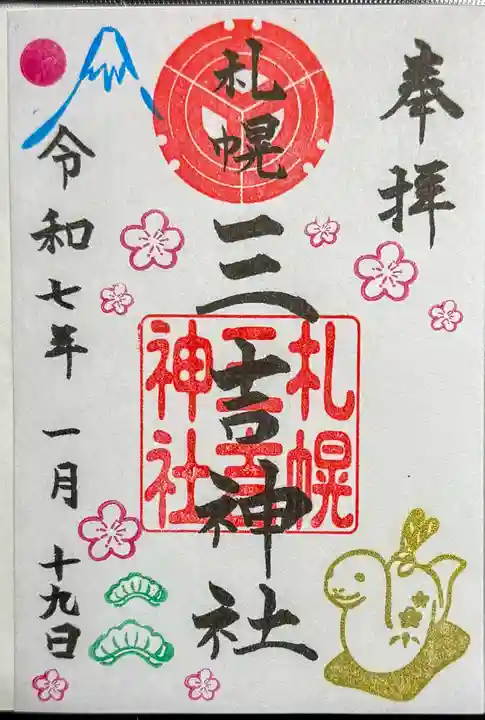 奉拝
札幌
三吉神社
札幌
三吉
神社
令和七年 一月 十九日